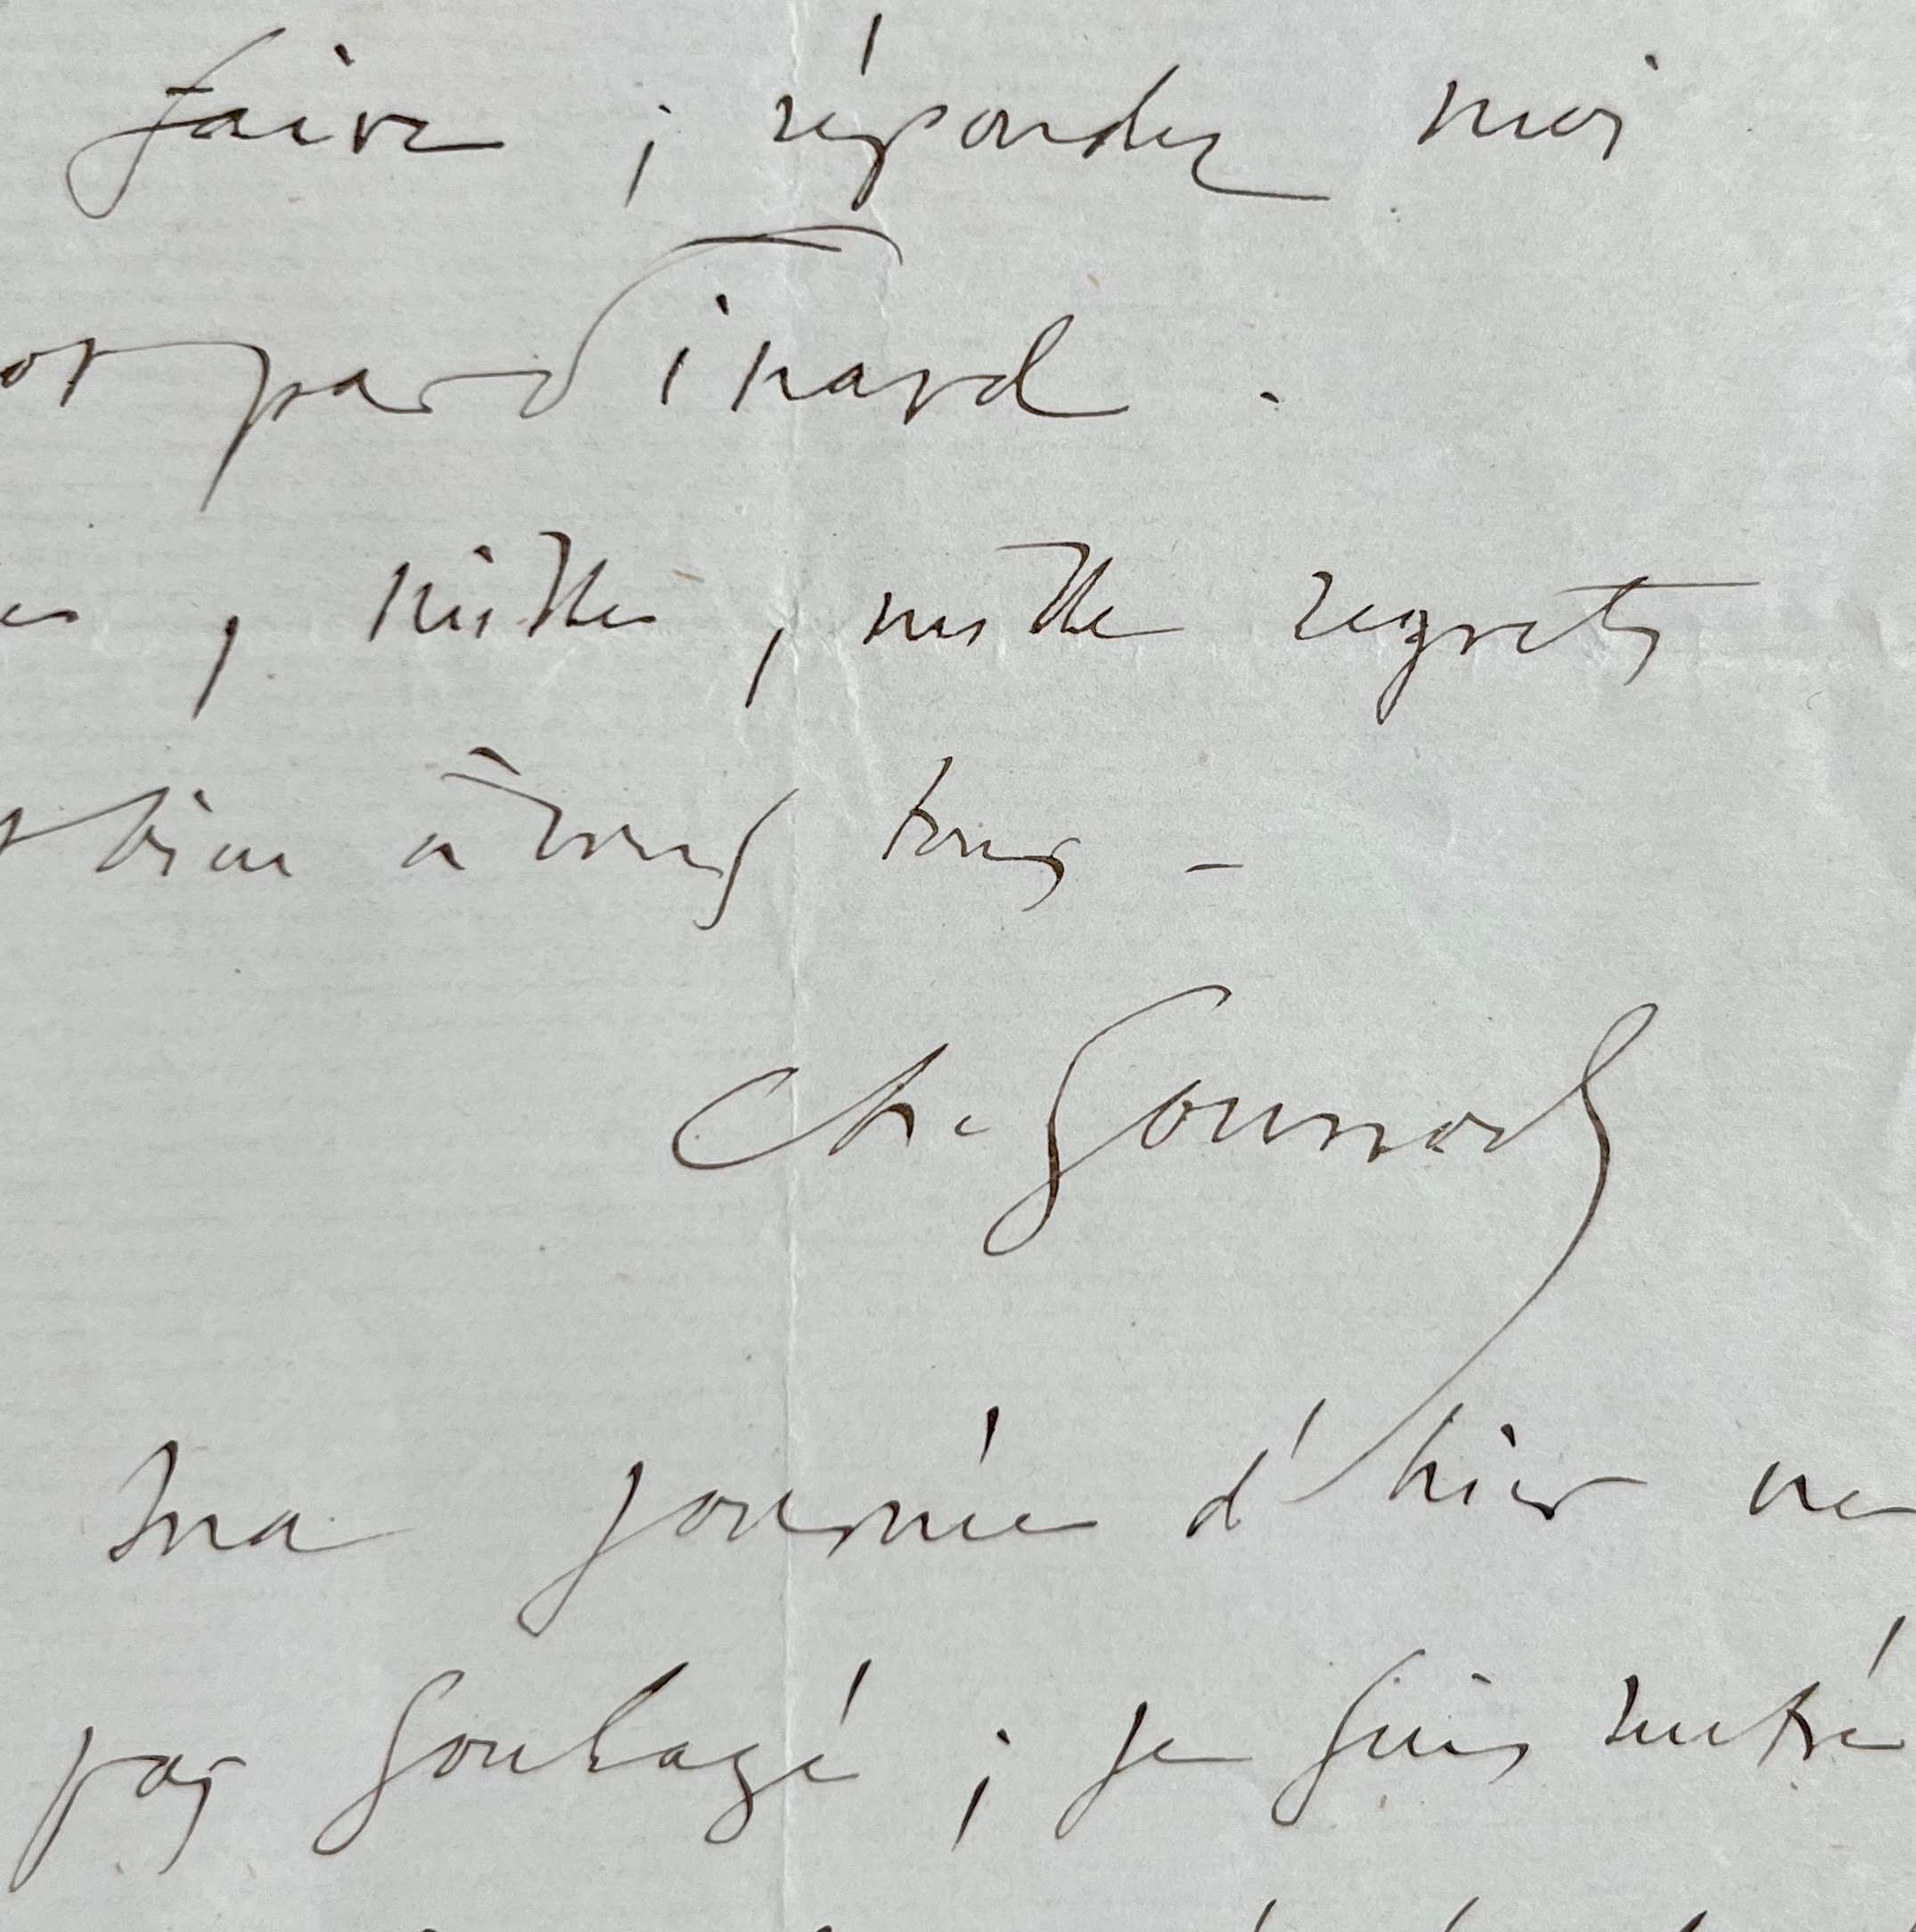 faire ; répondez moi
par Pinard .
, mille , mille regrets
bien à vous tous –
Ch. Gounod
ma journée d'hier ne
pas soulagé ; je suis rentré